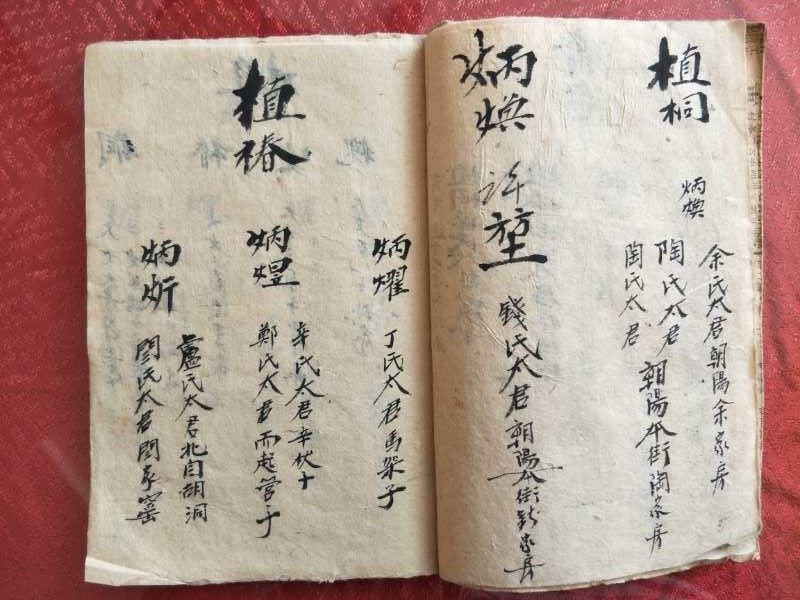 植桐
炳煥
余氏太君朝陽余家房
陶氏太君朝陽本街陶家房
陶氏太君
炳煥
許堃
錢氏太君朝陽本街錢家房
植椿
炳耀
丁氏太君馬架子
炳煜
辛氏太君辛杖子
鄭氏太君而趕營子
炳炘
盧氏太君北自胡洞
閻氏太君閻家窰